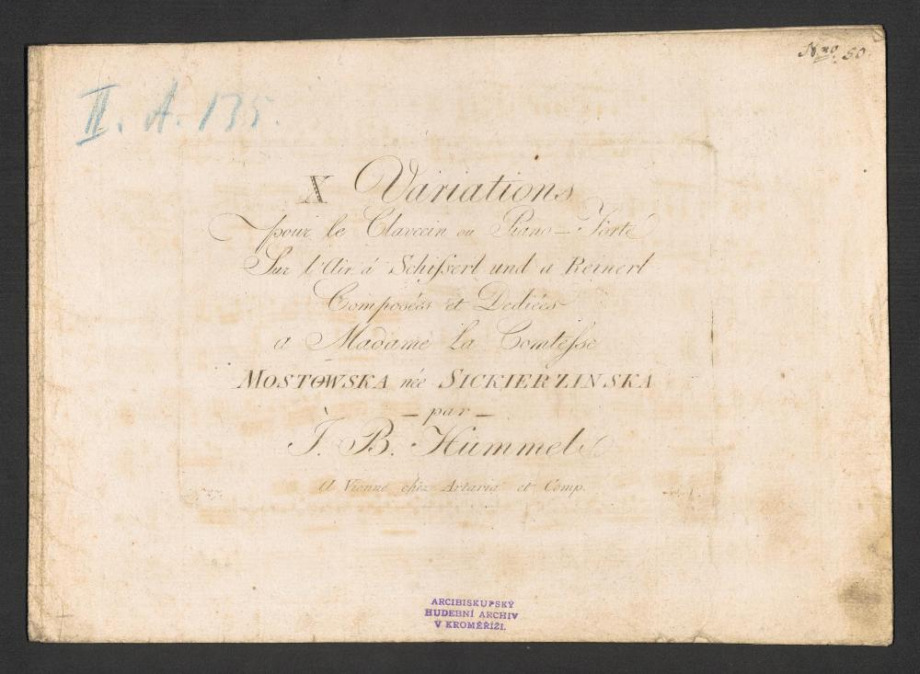 Nro. 50
II. A. 135.
X Variations
pour le Clavecin ou Piano-Forte
Sur l'Air á Schisserl und a Reinerl
Composées et Dediées
a Madame la Comtesse
MOSTOWSKA née SICKIERZINSKA
— par —
J. B. Hummel
A Vienne chez Artaria et Comp.
ARCIBISKUPSKÝ
HUDEBNÍ ARCHIV
V KROMĚŘÍŽI.